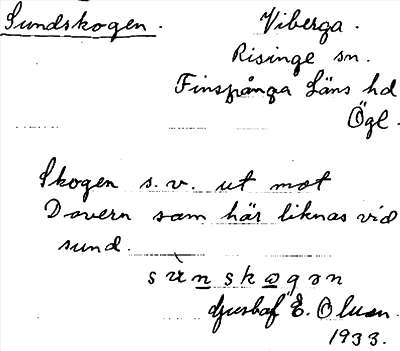 Sundskogen.
Viberga.
Risinge sn.
Finspånga Läns hd
Ögl.
Skogen s.v. ut mot
Dovern som här liknas vid
sund.
sùnskogən
Gustaf E. Olson.
1933.